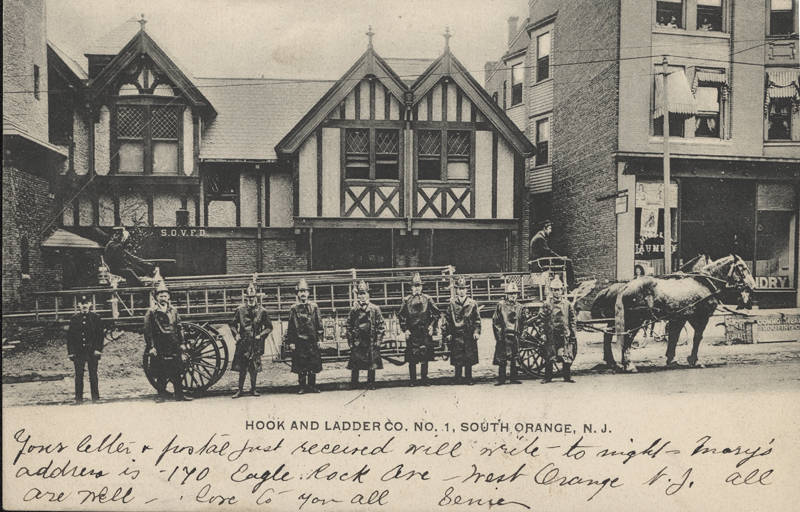 S.O.V.F.D.
LAUNDRY
HOOK AND LADDER CO. NO. 1, SOUTH ORANGE, N. J.
Your letter & postal just received will write - to night - Mary's
address is - 170 Eagle Rock Ave - West Orange N.J. all
are well - love to you all